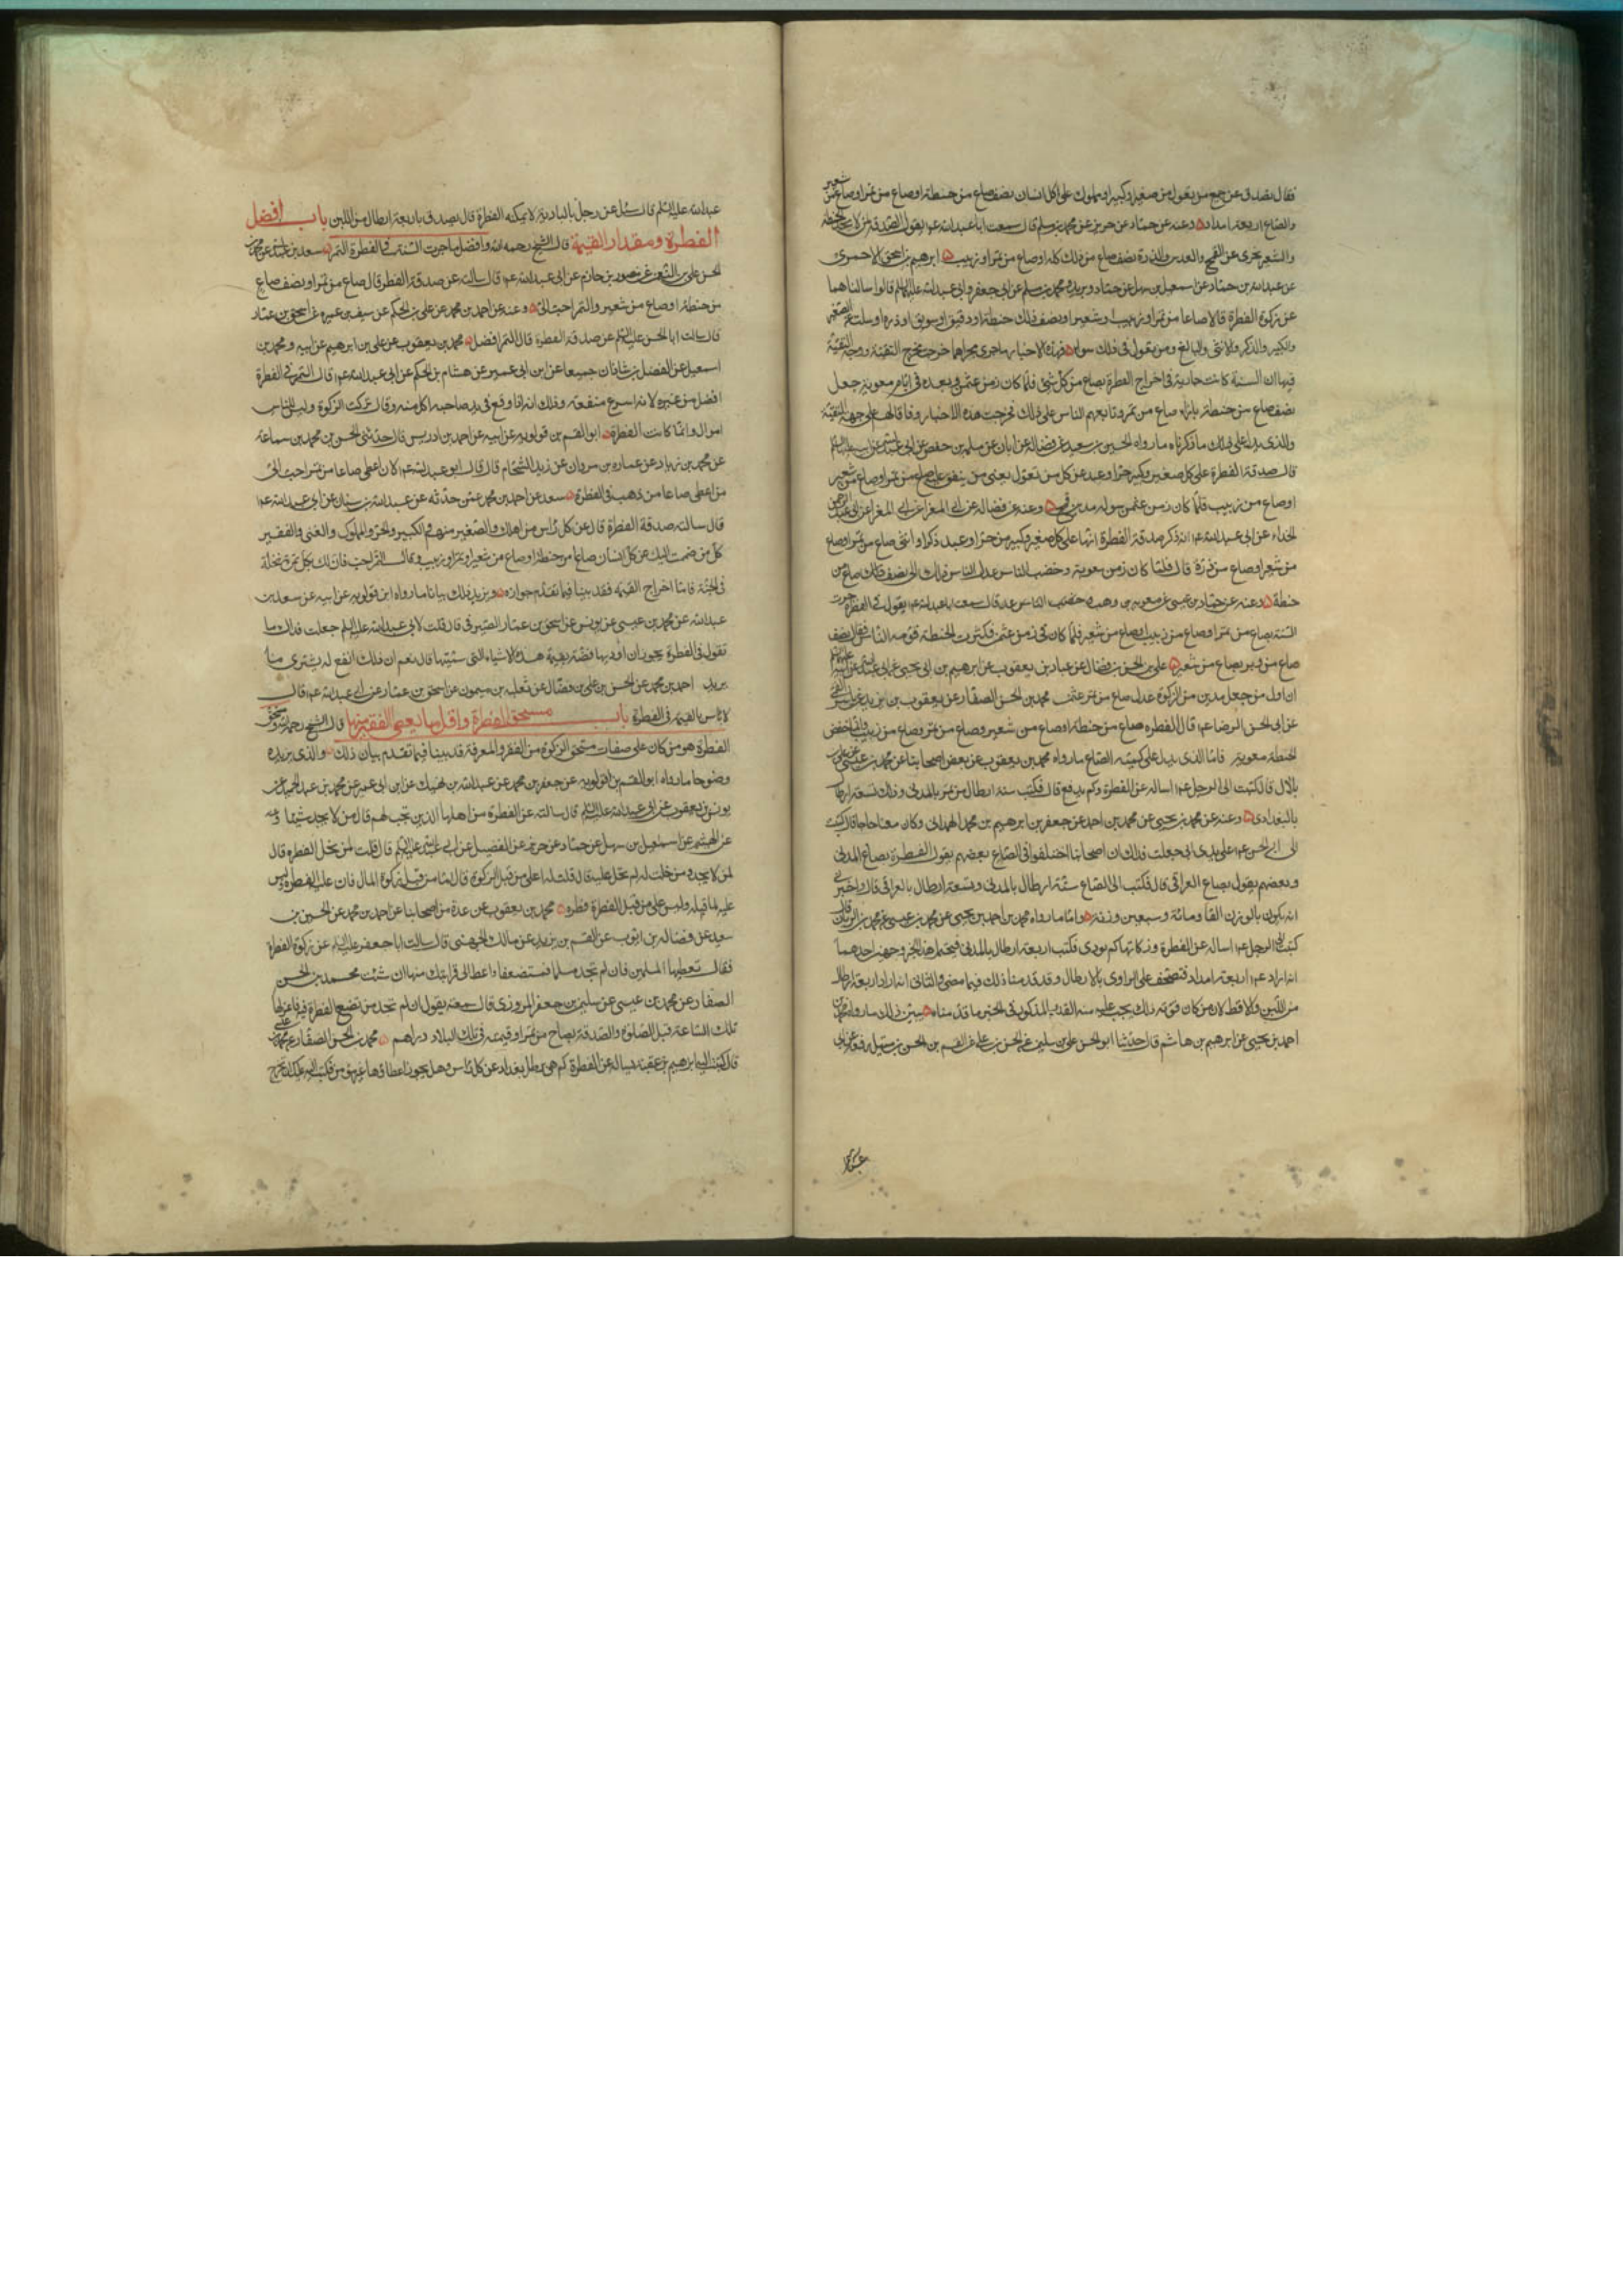 فقال تصدق عن جميع من تعول من صغير وكبير او مملوك على كل انسان نصف صاع من حنطة او صاع من تمر او صاع من شعير
والصاع اربعة امداد وعنه عن حماد عن حريز عن محمد بن مسلم قال سمعت ابا عبد الله ع يقول الصدقة لمن لا يجد الحنطة
والشعير يجزى عنه القمح والعدس والذرة نصف صاع من ذلك كله او صاع من تمر او زبيب ابرهيم بن اسحق الاحمرى
عن عبد الله بن حماد عن اسمعيل بن سهل عن حماد وبريد ومحمد بن مسلم عن ابى جعفر وابى عبد الله عليهما السلم قالوا سالناهما
عن زكوة الفطرة قالا صاع من تمر او زبيب او شعير او نصف ذلك حنطة او دقيق او سويق او ذرة او سلت عن الصغير
والكبير والذكر والانثى والبالغ ومن تعول فى ذلك سواء فهذه الاخبار وما جرى مجراها خرجت مخرج التقية ووجه التقية
فيها ان السنة كانت جارية فى اخراج الفطرة بصاع من كل شئ فلما كان زمن عثمن وبعده فى ايام معوية جعل
نصف صاع من حنطة بازاء صاع من تمر وتابعهم الناس على ذلك فخرجت هذه الاخبار وفاقا لهم على جهة التقية
والذى يدل على ذلك ما ذكرناه ما رواه الحسين بن سعيد عن فضالة عن ابان عن سلمة بن حفص عن ابى عبد الله عن ابيه عليهما السلم
قال صدقة الفطرة على كل صغير وكبير حر او عبد عن كل من تعول يعنى من ينفق عليه صاع من تمر او صاع من شعير
او صاع من زبيب فلما كان زمن عثمن حوله مدين من قمح وعنه عن فضالة عن ابى المغرا عن ابى عبد الرحمن
الحذاء عن ابى عبد الله ع انه ذكر صدقة الفطرة انها على كل صغير وكبير من حر او عبد ذكر او انثى صاع من تمر او صاع
من شعير او صاع من ذرة قال فلما كان زمن معوية وخصب الناس عدل الناس ذلك الى نصف صاع من
حنطة وعنه عن حماد بن عيسى عن معوية بن وهب قال سمعت ابا عبد الله ع يقول فى الفطرة جرت
السنة بصاع من تمر او صاع من زبيب او صاع من شعير فلما كان فى زمن عثمن وكثرت الحنطة قومه الناس فقال نصف
صاع من بر بصاع من شعير على بن الحسن بن فضال عن عباد بن يعقوب عن ابرهيم بن ابى يحيى عن ابى عبد الله عن ابيه عليهما السلم
ان اول من جعل مدين من الزكوة عدل صاع من تمر عثمن محمد بن الحسن الصفار عن يعقوب بن يزيد عن ياسر القمى
عن ابى الحسن الرضا ع قال الفطرة صاع من حنطة او صاع من شعير وصاع من تمر وصاع من زبيب وانما خفض
الحنطة معوية فاما الذى يدل على كمية الصاع ما رواه محمد بن يعقوب عن بعض اصحابنا عن محمد بن عيسى عن على بن
بلال قال كتبت الى الرجل ع اساله عن الفطرة وكم يدفع قال فكتب ستة ارطال من تمر بالمدنى وذلك تسعة ارطال
بالبغدادى وعنه عن محمد بن يحيى عن محمد بن احمد عن جعفر بن ابرهيم بن محمد الهمدانى وكان معنا حاجا قال كتبت
الى ابى الحسن ع على يدى ابى جعلت فداك ان اصحابنا اختلفوا فى الصاع بعضهم يقول الفطرة بصاع المدنى
وبعضهم يقول بصاع العراقى قال فكتب الى الصاع ستة ارطال بالمدنى وتسعة ارطال بالعراقى قال واخبرنى
انه يكون بالوزن الفا ومائة وسبعين وزنة واما ما رواه محمد بن احمد بن يحيى عن محمد بن عيسى عن محمد بن الريان قال
كتبت الى الرجل ع اساله عن الفطرة وزكاتها كم تودى فكتب اربعة ارطال بالمدنى فيحتمل هذا الخبر وجهين احدهما
انه اراد ع اربعة امداد فتصحف على الراوى بالارطال وقد قدمنا ذلك فيما مضى والثانى انه اراد اربعة ارطال
من اللبن والاقط لان من كان قوته ذلك يجب عليه منه القدر المذكور فى الخبر ما قدمناه يبين ذلك ما رواه محمد بن
احمد بن يحيى عن ابرهيم بن هاشم قال حدثنا ابو الحسن على بن سليمن عن الحسن بن على عن القسم بن الحسن رفعه عن ابى
عبد الله عليه السلم قال سئل عن رجل بالبادية لا يمكنه الفطرة قال تصدق باربعة ارطال من اللبن باب افضل
الفطرة ومقدار القيمة قال الشيخ رحمه الله وافضل ما جرت السنة به فى الفطرة التمر سعد بن عبد الله عن محمد بن
الحسن على بن النعمن عن منصور بن حازم عن ابى عبد الله ع قال سالته عن صدقة الفطرة قال صاع من تمر او نصف صاع
من حنطة او صاع من شعير والتمر احب الى وعنه عن احمد بن محمد عن على بن الحكم عن سيف بن عميره عن اسحق بن عمار
قال سالت ابا الحسن عليه السلم عن صدقة الفطرة قال التمر افضل محمد بن يعقوب عن على بن ابرهيم عن ابيه ومحمد بن
اسمعيل عن الفضل بن شاذان جميعا عن ابن ابى عمير عن هشام بن الحكم عن ابى عبد الله ع قال التمر فى الفطرة
افضل من غيره لانه اسرع منفعة وذلك انه اذا وقع فى يد صاحبه اكل منه وقال نزلت الزكوة وليس للناس
اموال وانما كانت الفطرة ابو القسم بن قولويه عن ابيه عن احمد بن ادريس قال حدثنى الحسن بن محمد بن سماعة
عن محمد بن زياد عن عمارة بن مروان عن زيد الشحام قال قال ابو عبد الله ع لان اعطى صاعا من تمر احب الى
من اعطى صاعا من ذهب فى الفطرة سعد عن احمد بن محمد عمن حدثه عن عبد الله بن سنان عن ابى عبد الله ع
قال سالته صدقة الفطرة قال عن كل راس من اهلك والصغير منهم والكبير والحر والمملوك والغنى والفقير
كل من ضممت اليك عن كل انسان صاعا من حنطة او صاع من شعير او تمر او زبيب وقال التمر احب فان لك بكل تمرة نخلة
فى الجنة فاما اخراج القيمة فقد بينا فيما تقدم جوازه ويزيد ذلك بيانا ما رواه ابن قولويه عن ابيه عن سعد بن
عبد الله عن محمد بن عيسى عن يونس عن اسحق بن عمار الصيرفى قال قلت لابى عبد الله عليه السلم جعلت فداك ما
تقول فى الفطرة يجوز ان اوديها فضة بقيمة هذه الاشياء التى سميتها قال نعم ان ذلك انفع له يشترى ما
يريد احمد بن محمد عن الحسن بن على بن فضال عن ثعلبة بن ميمون عن اسحق بن عمار عن ابى عبد الله ع قال
لا باس بالقيمة فى الفطرة باب مستحق الفطرة واقل ما يعطى الفقير منها قال الشيخ رحمه الله ومستحق
الفطرة هو من كان على صفات مستحق الزكوة من الفقر والمعرفة قد بينا فيما تقدم بيان ذلك والذى يزيده
وضوحا ما رواه ابو القسم بن قولويه عن جعفر بن محمد عن عبد الله بن نهيك عن ابن ابى عمير عن محمد بن عبد الحميد عن
يونس بن يعقوب عن ابى عبد الله عليه السلم قال سالته عن الفطرة من اهلها الذين تجب لهم قال من لا يجد شيئا وعنه
عن الهيثم عن اسمعيل بن سهل عن حماد عن حريز عن الفضيل عن ابى عبد الله عليه السلم قال قلت لمن تحل الفطرة قال
لمن لا يجد ومن حلت له لم تحل عليه قال قلت له اعلى من قبل الزكوة قال اما من قبل زكوة المال فان عليه الفطرة وليس
عليه لما قبله وليس على من قبل الفطرة فطره محمد بن يعقوب عن عدة من اصحابنا عن احمد بن محمد عن الحسين بن
سعيد عن فضاله بن ايوب عن القسم بن بريد عن مالك الجهنى قال سالت ابا جعفر عليه السلم عن زكوة الفطرة
فقال تعطيها المسلمين فان لم تجد مسلما فمستضعفا واعط ذا قرابتك منها ان شئت محمد بن الحسن
الصفار عن محمد بن عيسى عن سليمن بن جعفر المروزى قال سمعته يقول ان لم تجد من تضع الفطرة فيه فاعزلها
تلك الساعة قبل الصلوة والصدقة بصاع من تمر او قيمته فى تلك البلاد دراهم محمد بن الحسن الصفار عن محمد بن